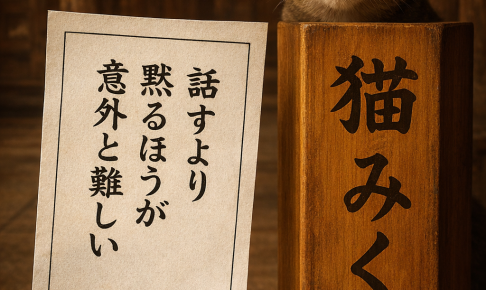 話すより
黙るほうが
意外と難しい
猫みく